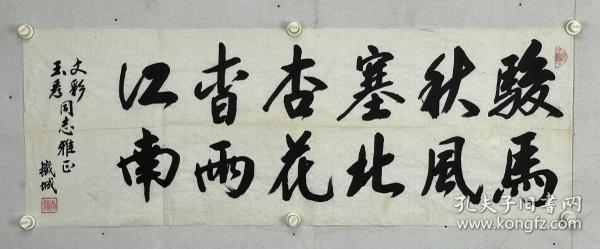 駿馬
秋風
塞北
杏花
旾雨
江南
文彩
玉秀
同志雅正
鐵城
孔夫子旧书网
www.kongfz.com